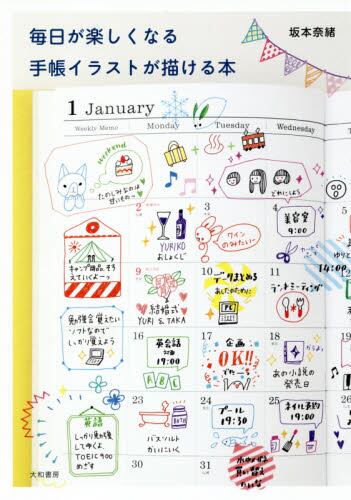 毎日が楽しくなる
手帳イラストが描ける本
坂本奈緒
1 January
Weekly Memo Monday Tuesday Wednesday
weekend
たのしみなのは
甘いもの〜
2
3
4
5
YURIKO
おしょくじ
ワイン
のみたい〜
どれにしよう
美容室
9:00
キャンプ用品、そろ
えていくよーっ
9
10
11
結婚式
YURI & TAKA
データまとめる
あしたのために
ランチミーティング
14:00
勉強会で覚えた
ソフトなので
しっかり覚えよう
16
17
18
英会話
19:00
ABC
企画
OK!!
あの小説の
発売日
英語
しっかり身に付け
してゆくよ。
TOEIC 900
めざす
23
24
25
バスソルト
かいにいく
プール
19:30
ネイル予約
19:00
30
31
大和書房